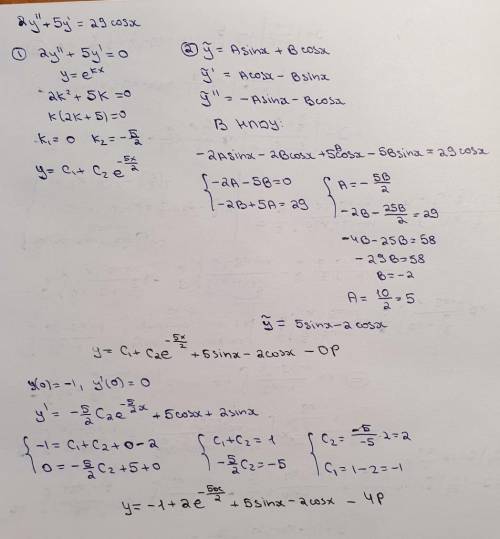 2y'' + 5y' = 29 cosx
① 2y'' + 5y' = 0
y = e^{kx}
2k² + 5k = 0
k(2k + 5) = 0
k₁ = 0 k₂ = -5/2
y = C₁ + C₂ e^{-5x/2}
② ỹ = Asinx + Bcosx
ỹ' = Acosx - Bsinx
ỹ'' = -Asinx - Bcosx
В НЛДУ:
-2Asinx - 2Bcosx + 5Acosx - 5Bsinx = 29cosx
{ -2A - 5B = 0
-2B + 5A = 29
{ A = -5B/2
-2B - 25B/2 = 29
-4B - 25B = 58
-29B = 58
B = -2
A = 10/2 = 5
ỹ = 5sinx - 2cosx
y = C₁ + C₂e^{-5x/2} + 5sinx - 2cosx - ОР
y(0) = -1, y'(0) = 0
y' = -5/2 C₂e^{-5/2 x} + 5cosx + 2sinx
{ -1 = C₁ + C₂ + 0 - 2
0 = -5/2 C₂ + 5 + 0
{ C₁ + C₂ = 1
-5/2 C₂ = -5
{ C₂ = -5/-5 · 2 = 2
C₁ = 1 - 2 = -1
y = -1 + 2e^{-5x/2} + 5sinx - 2cosx - ЧР